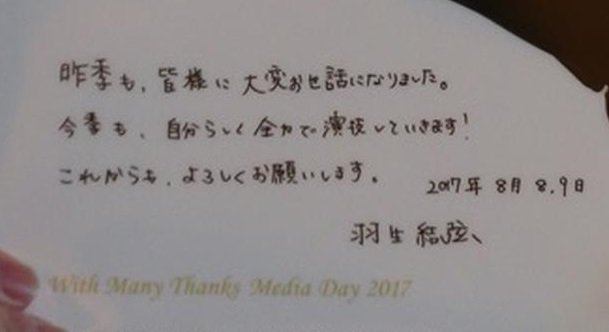 昨季も、皆様に大変お世話になりました。
今季も、自分らしく全力で演技していきます!
これからも、よろしくお願いします。
2017年 8月 8.9日
羽生結弦、
With Many Thanks Media Day 2017